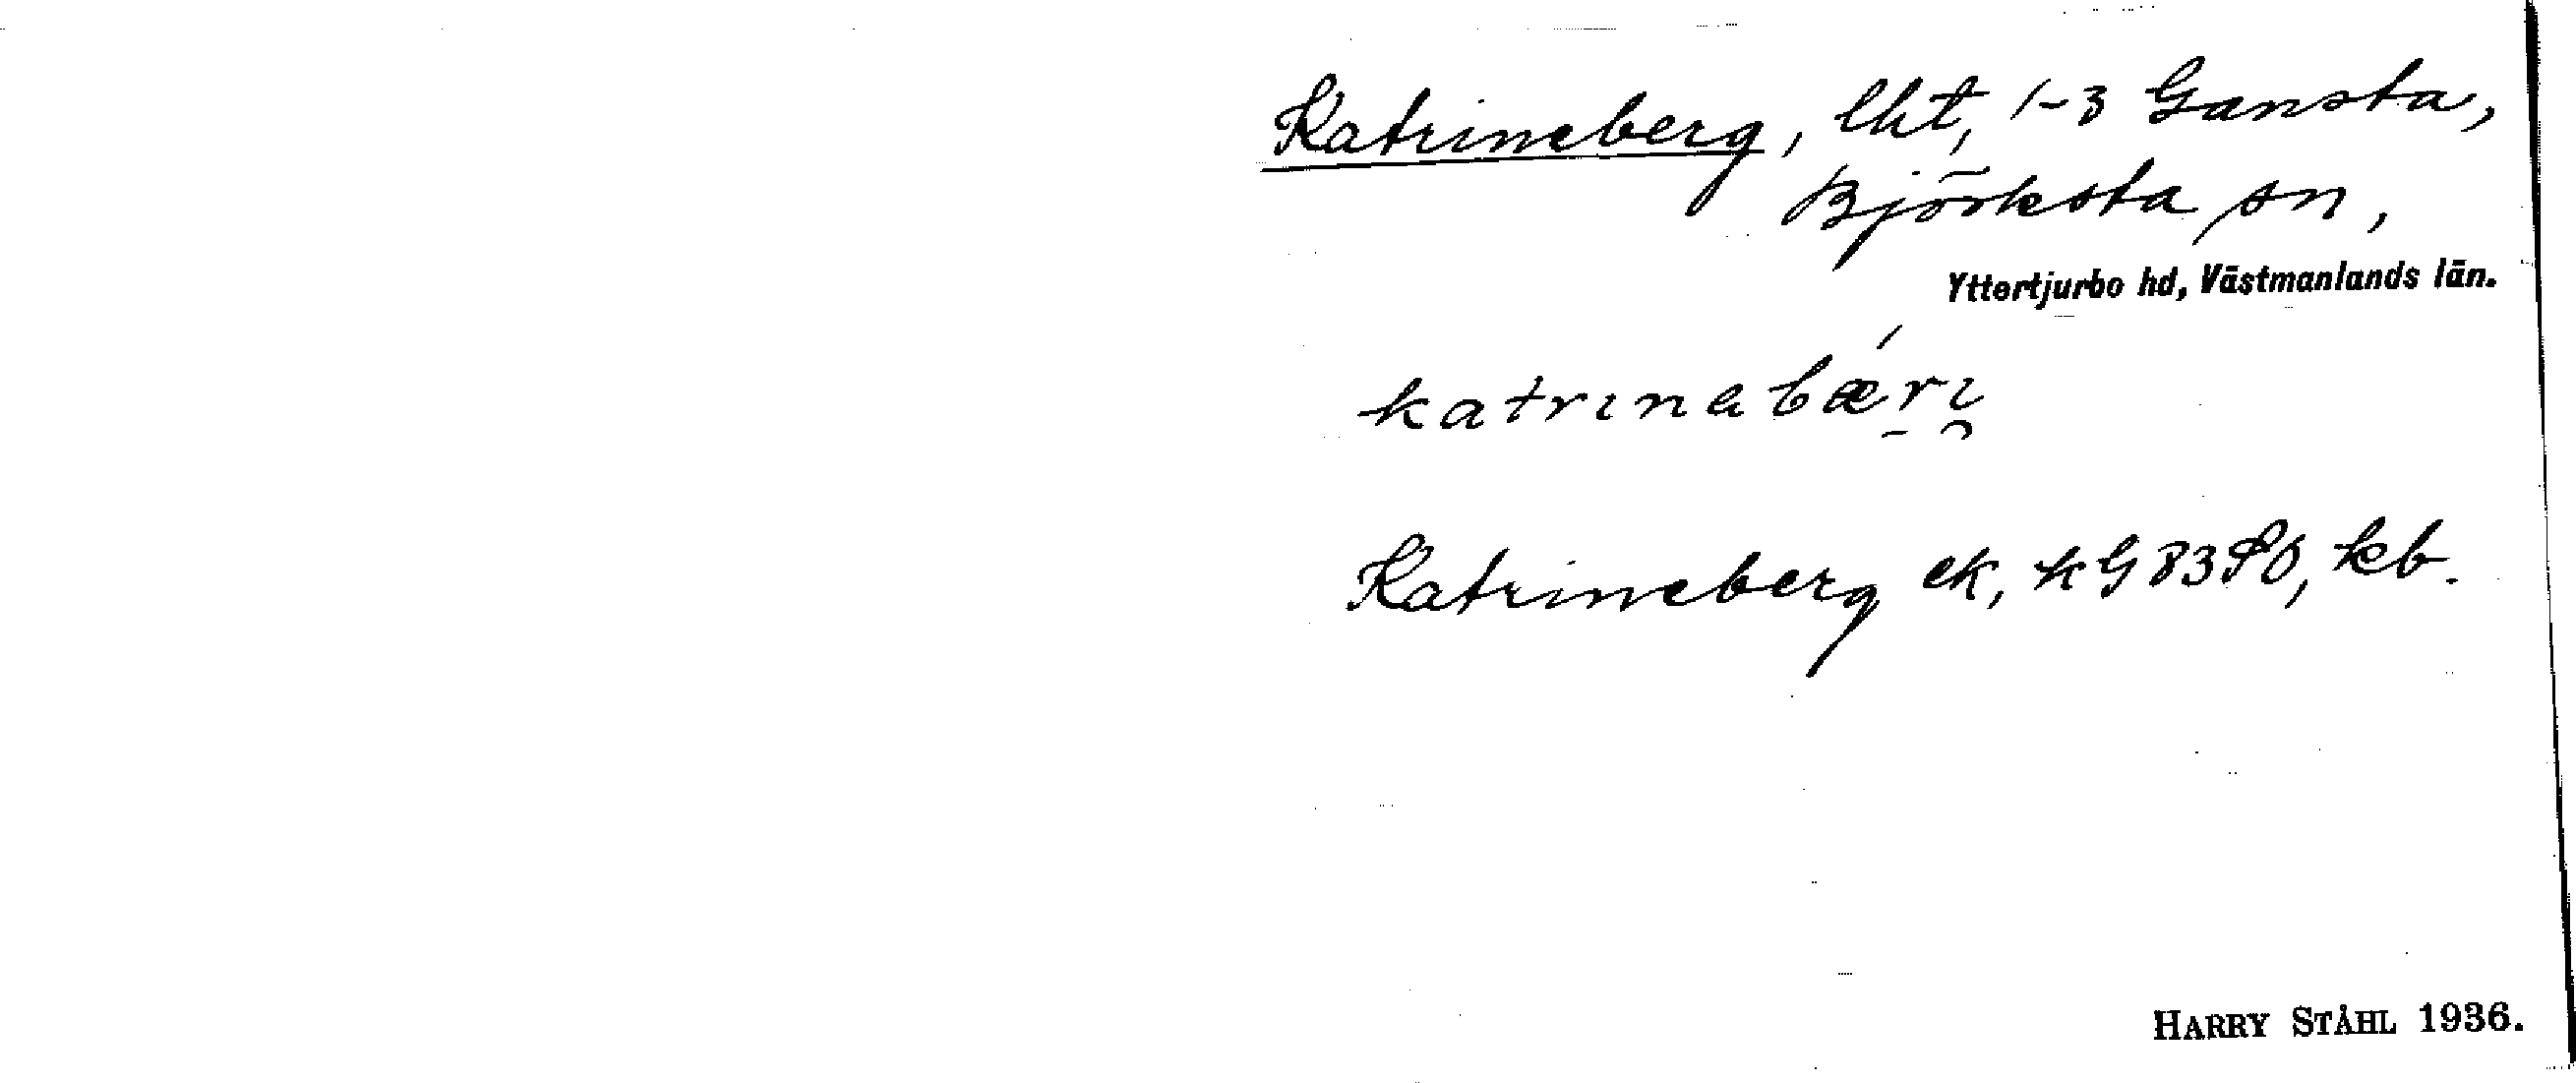 Katrineberg, lht, 1-3 Gansta,
Björksta sn,
Yttertjurbo hd, Västmanlands län.
katrinabæ´ri
Katrineberg ek, kG 83 SO, kb.
HARRY STÅHL 1936.